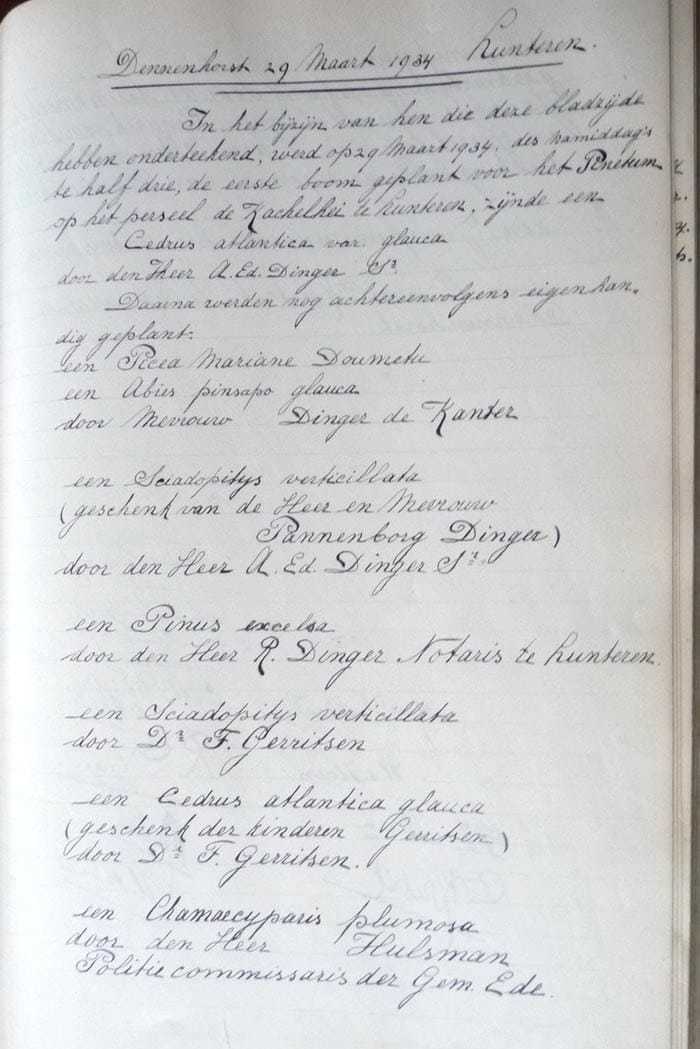 Dennenhorst 29 Maart 1934 Lunteren.
In het bijzijn van hen die deze bladzijde
hebben onderteekend, werd op 29 Maart 1934. des namiddag's
te half drie, de eerste boom geplant voor het Pinetum
op het perseel de Kachelhei te Lunteren, zijnde een
Cedrus atlantica var. glauca
door den Heer A. Ed. Dinger Sr.
Daarna werden nog achtereenvolgens eigenhan-
dig geplant:
een Picea Mariane Doumetu
een Abies pinsapo glauca
door Mevrouw Dinger de Kanter
een Sciadopitys verticillata
(geschenk van de Heer en Mevrouw
Pannenborg Dinger)
door den Heer A. Ed. Dinger Sr.
een Pinus excelsa
door den Heer R. Dinger Notaris te Lunteren.
een Sciadopitys verticillata
door Dr F. Gerritsen
een Cedrus atlantica glauca
(geschenk der kinderen Gerritsen)
door Dr F. Gerritsen.
een Chamaecyparis plumosa
door den Heer Hulsman
Politie commissaris der Gem. Ede.